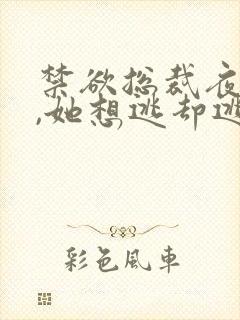 禁欲总裁夜
,她想逃却逃
彩色風車